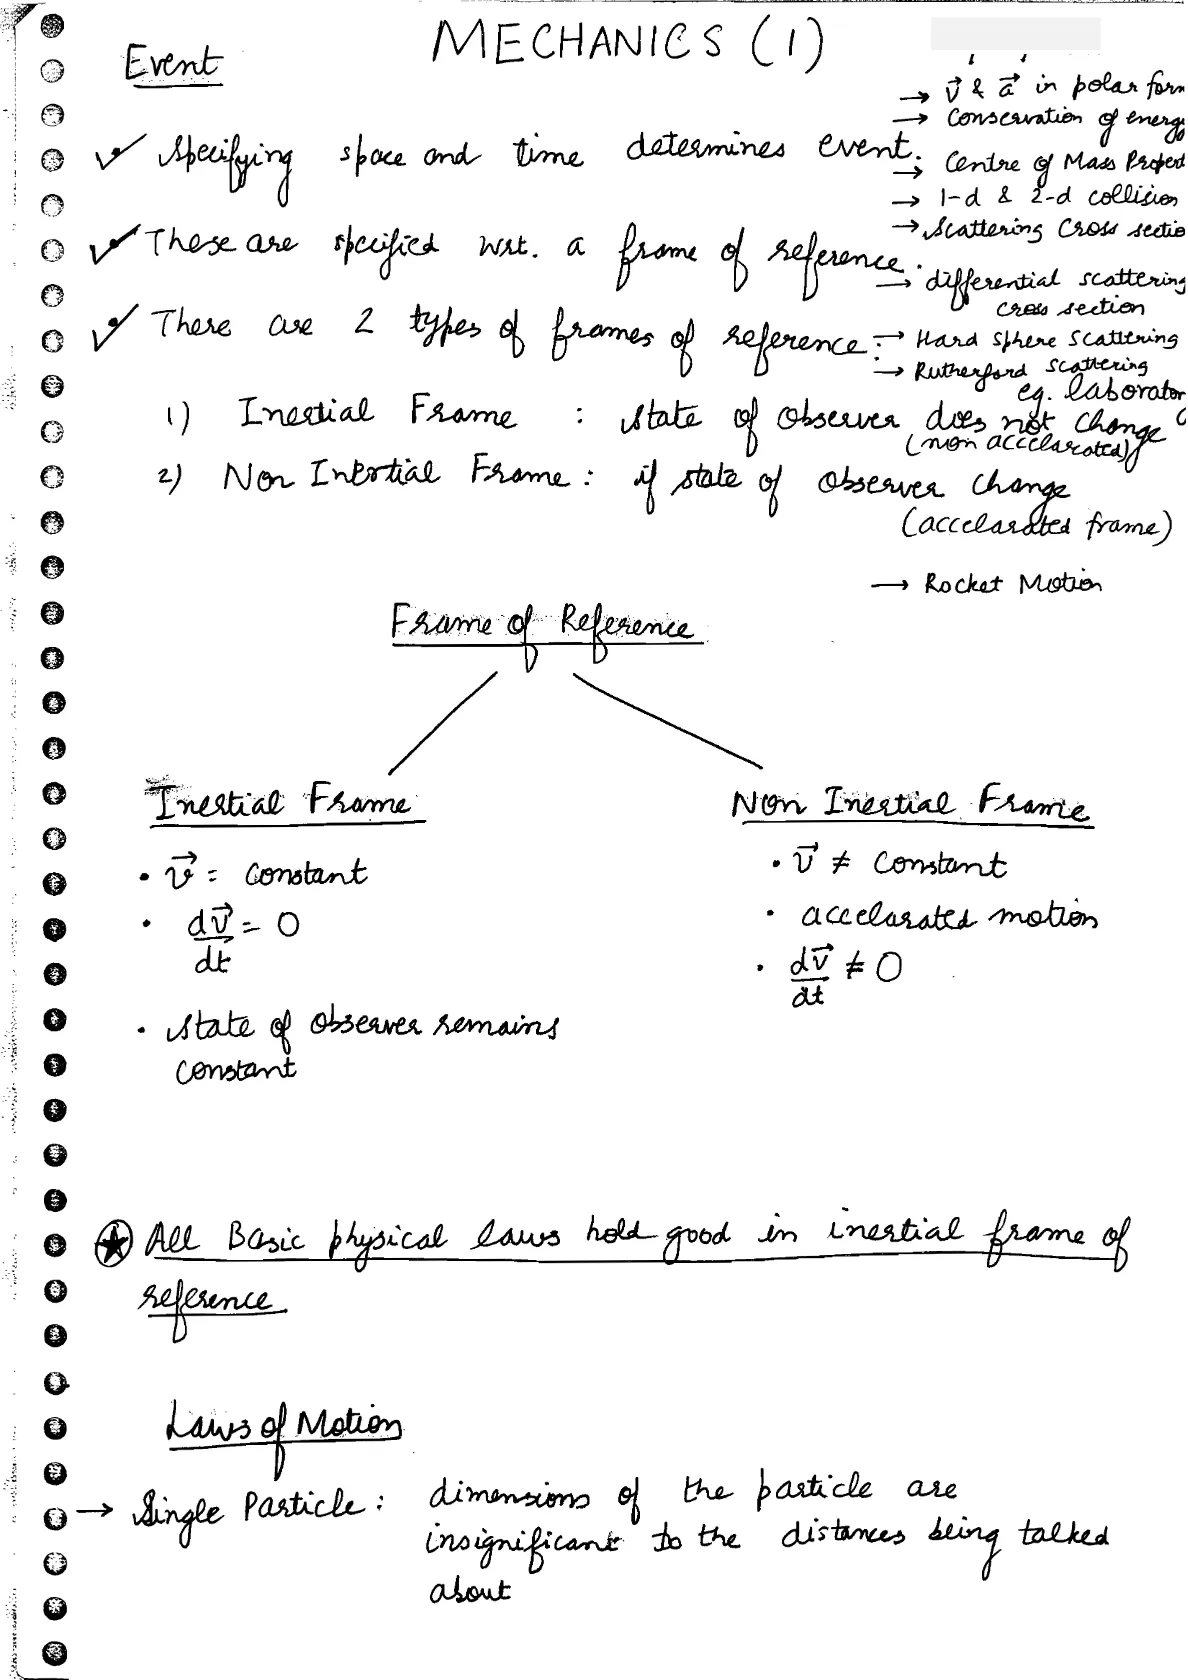 MECHANICS (1)
Event
→ v⃗ & a⃗ in polar form
→ Conservation of energy
✓• Specifying space and time determines event.
→ Centre of Mass Propert
→ 1-d & 2-d collision
→ Scattering Cross sectio
✓• These are specified wrt. a frame of reference.
→ differential scattering
cross section
✓• There are 2 types of frames of reference:
→ Hard sphere scattering
→ Rutherford scattering
eg. laborator
1) Inertial Frame : state of observer does not change
(non accelarated)
2) Non Inertial Frame : if state of observer change
(accelarated frame)
→ Rocket Motion
Frame of Reference
Inertial Frame
• v⃗ = constant
• dv⃗/dt = 0
• state of observer remains
constant
Non Inertial Frame
• v⃗ ≠ constant
• accelarated motion
• dv⃗/dt ≠ 0
★ All Basic physical laws hold good in inertial frame of
reference
Laws of Motion
→ Single Particle : dimensions of the particle are
insignificant to the distances being talked
about